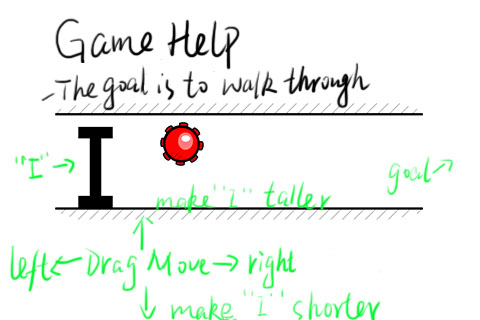 Game Help
-The goal is to walk through
"I"→
goal→
make "I" taller
↑
left← Drag Move → right
↓ make "I" shorter